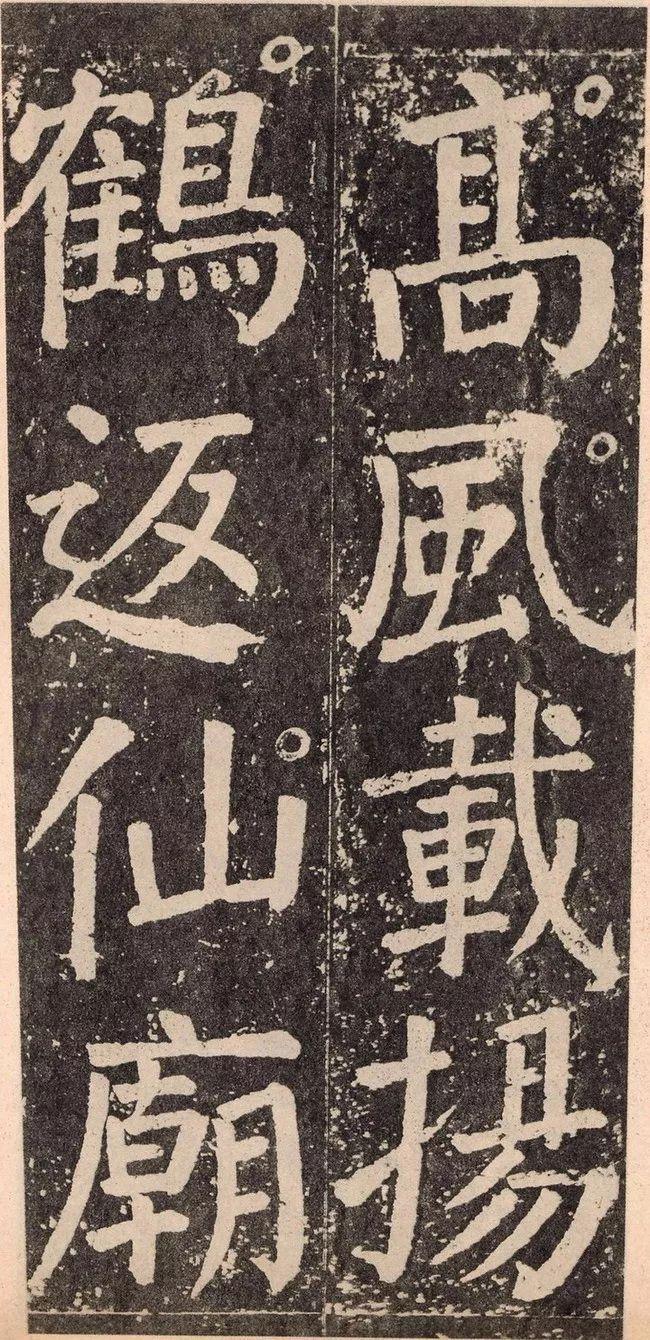 髙風載揚
鶴返仙廟